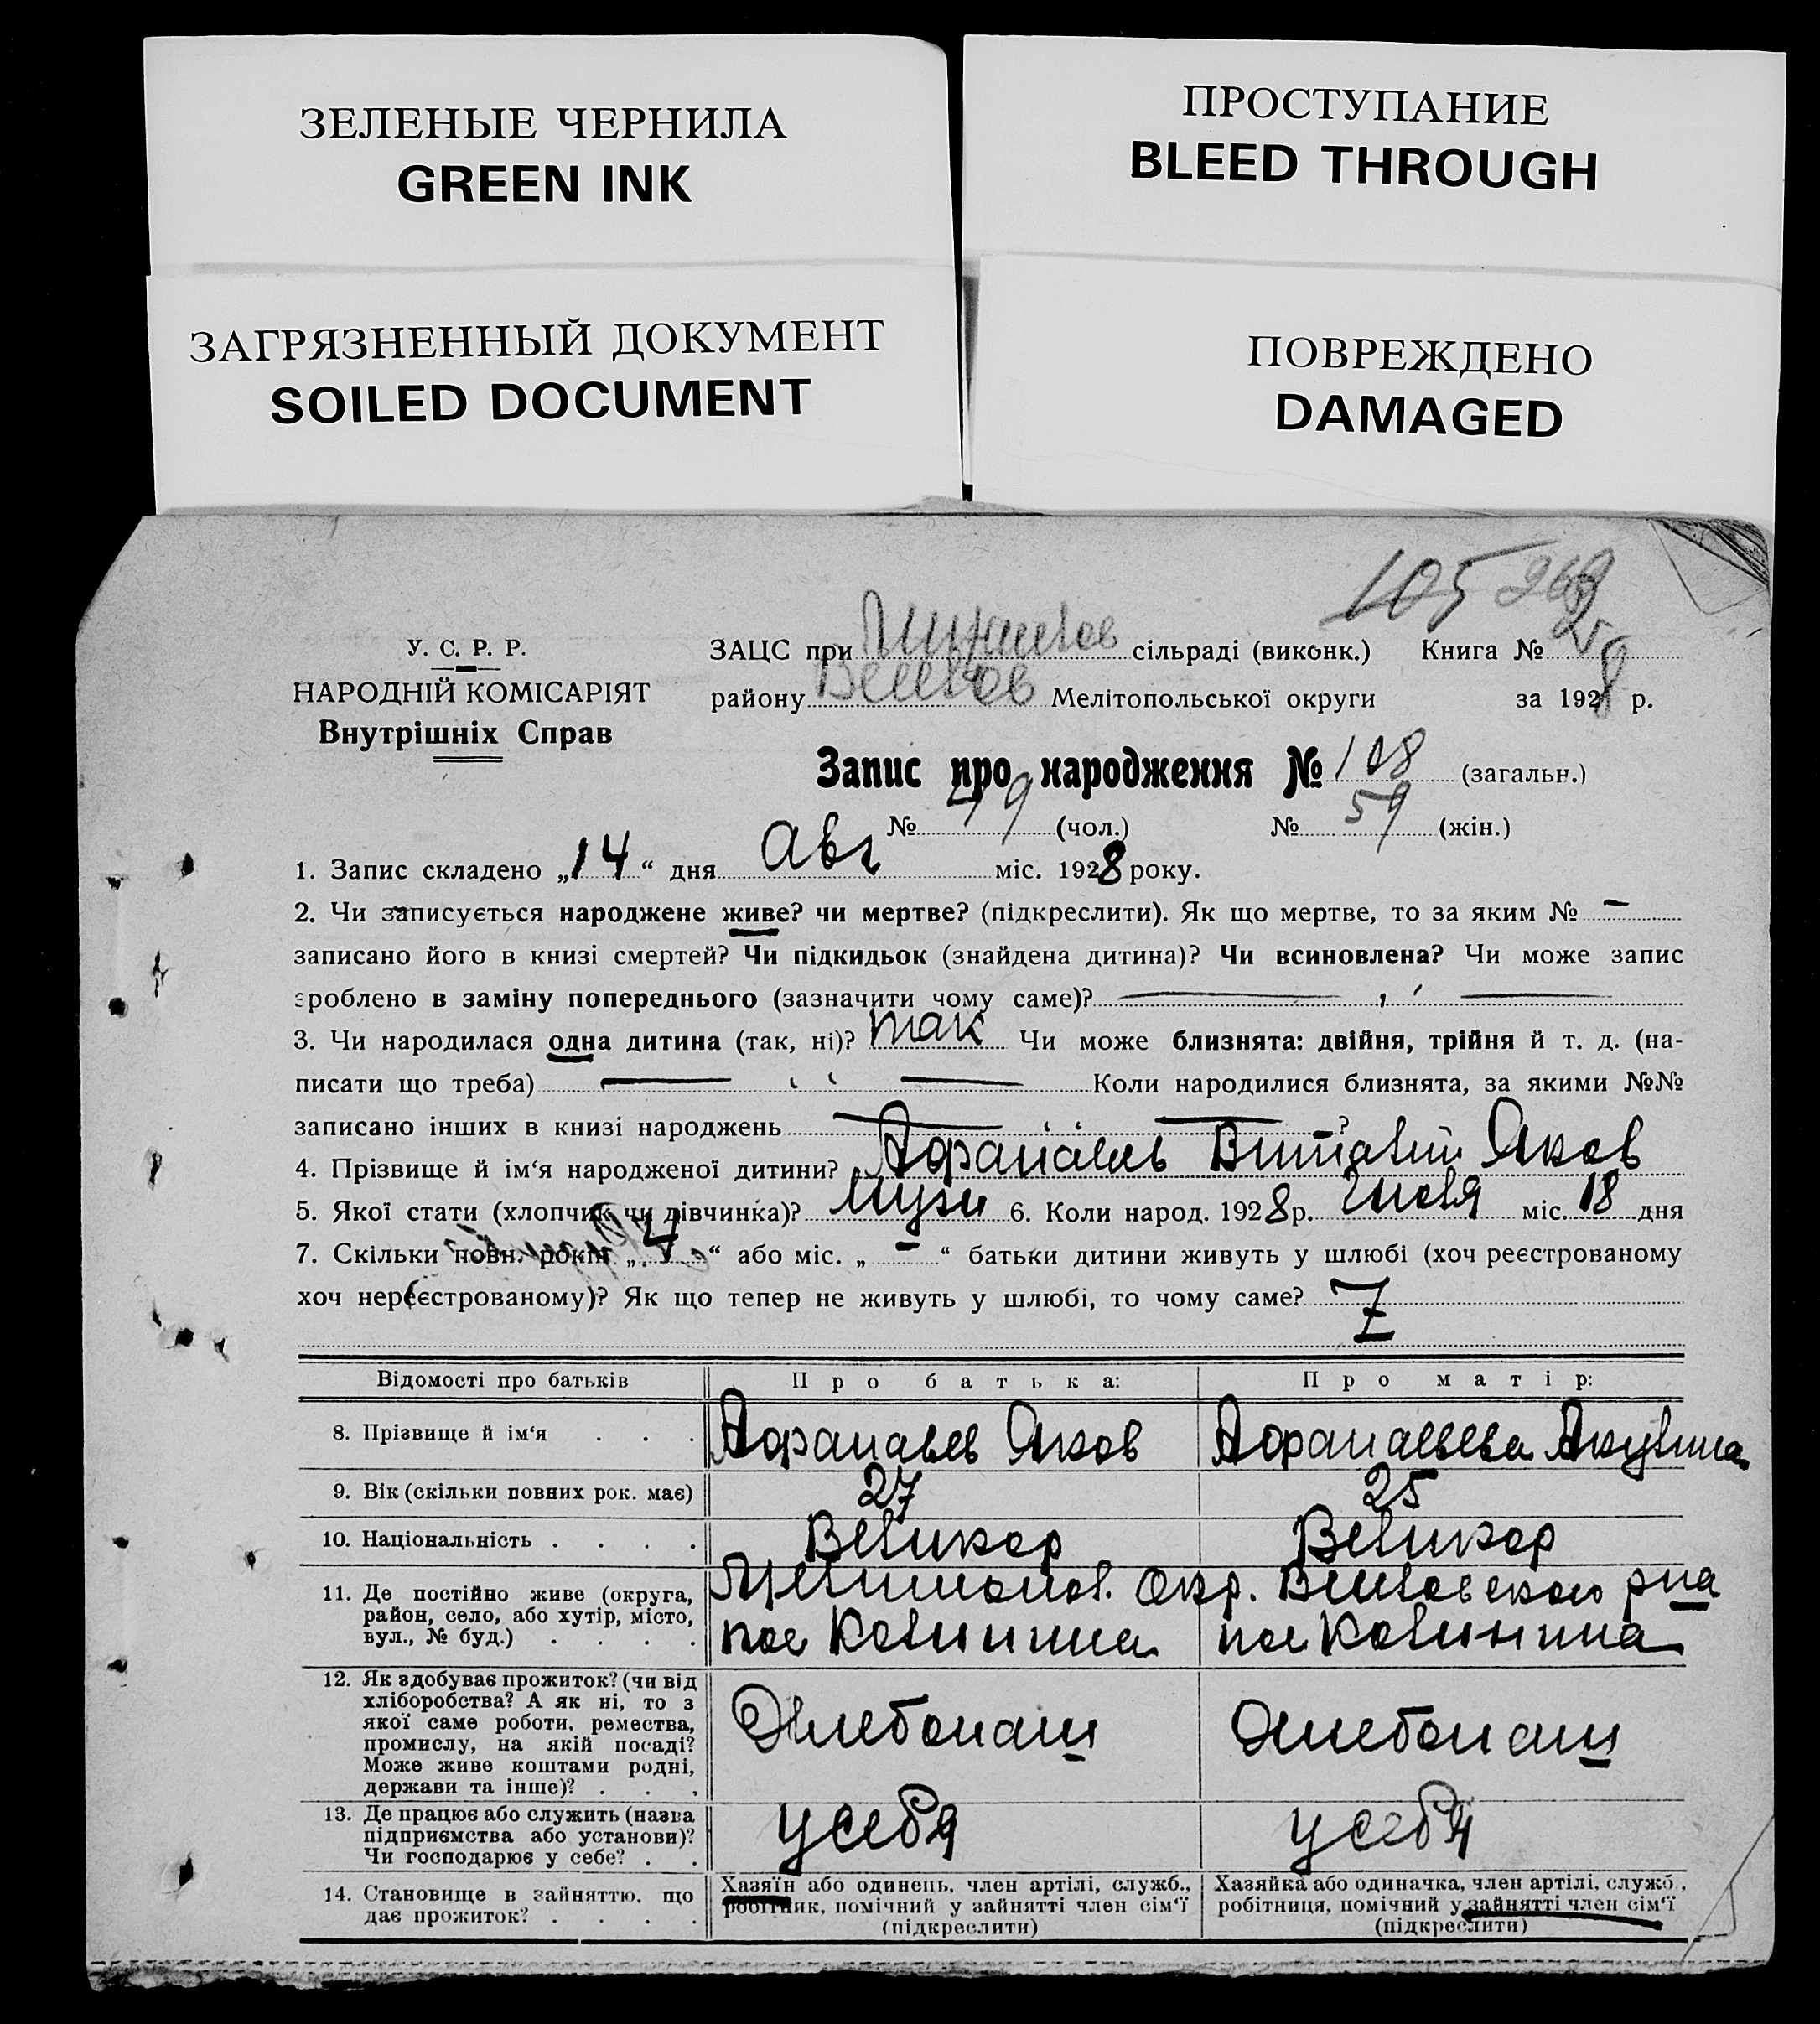 ЗЕЛЕНЫЕ ЧЕРНИЛА
GREEN INK
ПРОСТУПАНИЕ
BLEED THROUGH
ЗАГРЯЗНЕННЫЙ ДОКУМЕНТ
SOILED DOCUMENT
ПОВРЕЖДЕНО
DAMAGED
105
У. С. Р. Р.
НАРОДНІЙ КОМІСАРІЯТ
Внутрішніх Справ
ЗАЦС при сільраді (виконк.) Книга №
району Мелітопольської округи за 1928 р.
Запис про народження № 108 (загальн.)
№ 49 (чол.) № 59 (жін.)
1. Запис складено „14“ дня Авг міс. 1928 року.
2. Чи записується народжене живе? чи мертве? (підкреслити). Як що мертве, то за яким № —
записано його в книзі смертей? Чи підкидьок (знайдена дитина)? Чи всиновлена? Чи може запис
зроблено в заміну попереднього (зазначити чому саме)?
3. Чи народилася одна дитина (так, ні)? так Чи може близнята: двійня, трійня й т. д. (на-
писати що треба) Коли народилися близнята, за якими №№
записано інших в книзі народжень ?
4. Прізвище й ім‘я народженої дитини? Яков
5. Якої стати (хлопчик чи дівчинка)? Муж 6. Коли народ. 1928 р. міс. 18 дня
7. Скільки повн. років „4“ або міс. „—“ батьки дитини живуть у шлюбі (хоч реєстрованому
хоч нереєстрованому)? Як що тепер не живуть у шлюбі, то чому саме? Z
Відомості про батьків Про батька: Про матір:
8. Прізвище й ім‘я . . . Афанасьев Яков Афанасьева Акулина
9. Вік (скільки повних рок. має) 27 25
10. Національність . . . . Великор Великор
11. Де постійно живе (округа,
район, село, або хутір, місто,
вул., № буд.) . . . .
Мелитопол. Окр. рна
пос Калинина пос Калинина
12. Як здобуває прожиток? (чи від
хліборобства? А як ні, то з
якої саме роботи, ремества,
промислу, на якій посаді?
Може живе коштами родні,
держави та інше)? . . .
Хлебопаш Хлебопаш
13. Де працює або служить (назва
підприємства або установи)?
Чи господарює у себе? . .
у себя у себя
14. Становище в зайняттю, що
дає прожиток? . . . .
Хазяїн або одинець, член артілі, служб.,
робітник, помічний у зайнятті член сім‘ї
(підкреслити)
Хазяйка або одиначка, член артілі, служб.,
робітниця, помічний у зайнятті член сім‘ї
(підкреслити)